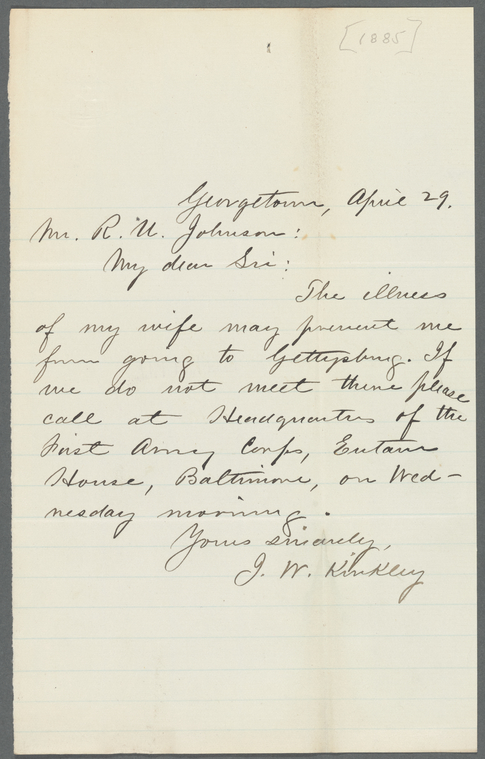 [1885]
Georgetown, April 29.
Mr. R. U. Johnson:
My dear Sir:
The illness
of my wife may prevent me
from going to Gettysburg. If
we do not meet there please
call at Headquarters of the
First Army Corps, Eutaw
House, Baltimore, on Wed-
nesday morning.
Yours sincerely,
J. W. Kirkley